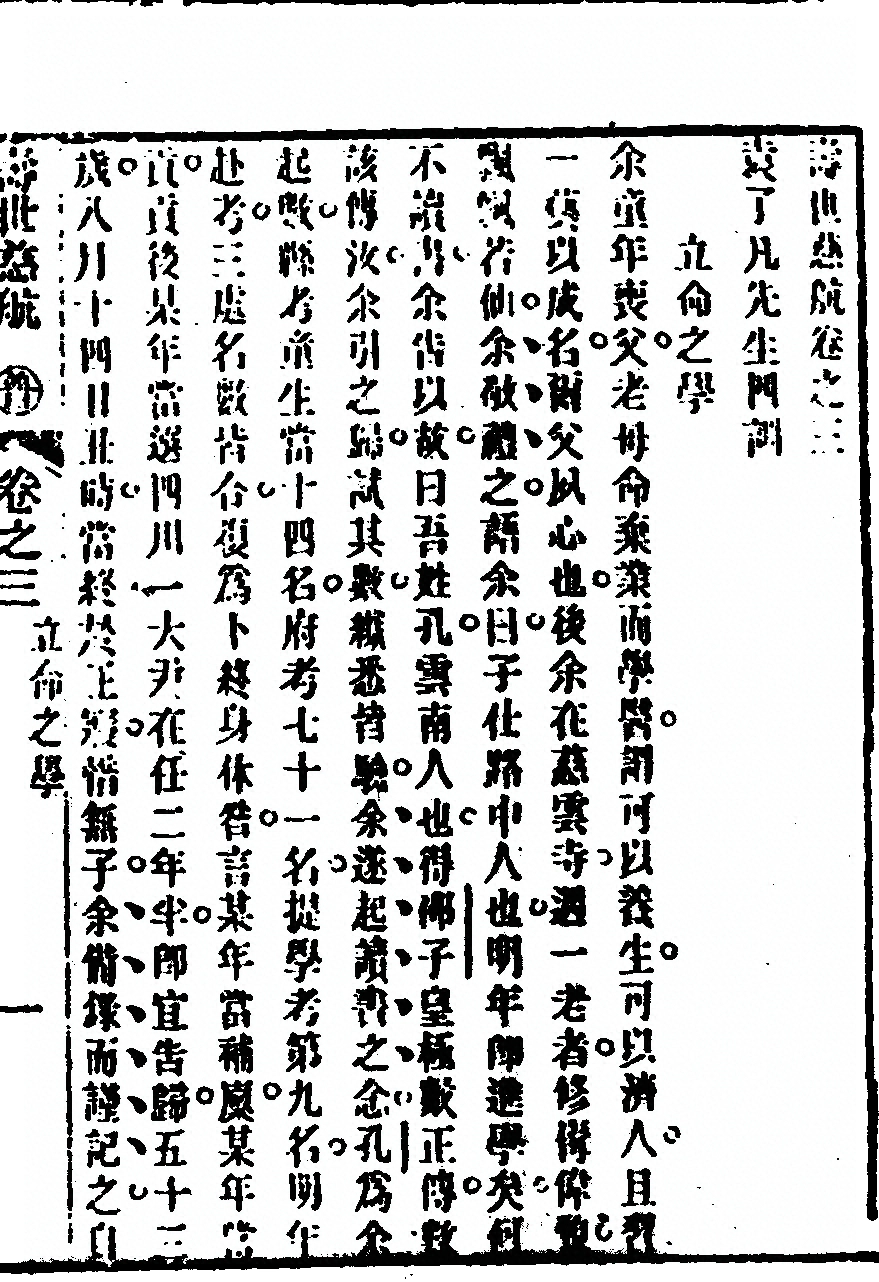 壽世慈航卷之三
袁了凡先生四訓
立命之學
余童年喪父老母命棄業而學醫謂可以養生可以濟人且習
一藝以成名爾父夙心也後余在慈雲寺遇一老者修髯偉貌
飄飄若仙余敬禮之語余曰子仕路中人也明年卽進學矣何
不讀書余告以故曰吾姓孔雲南人也得邵子皇極數正傳數
該傳汝余引之歸試其數纖悉皆驗余遂起讀書之念孔爲余
起數縣考童生當十四名府考七十一名提學考第九名明年
赴考三處名數皆合復爲卜終身休咎言某年當補廩某年當
貢貢後某年當選四川一大尹在任二年半卽宜告歸五十三
歲八月十四日丑時當終於正寢惜無子余備錄而謹記之自
壽世慈航
卷之三
立命之學
一